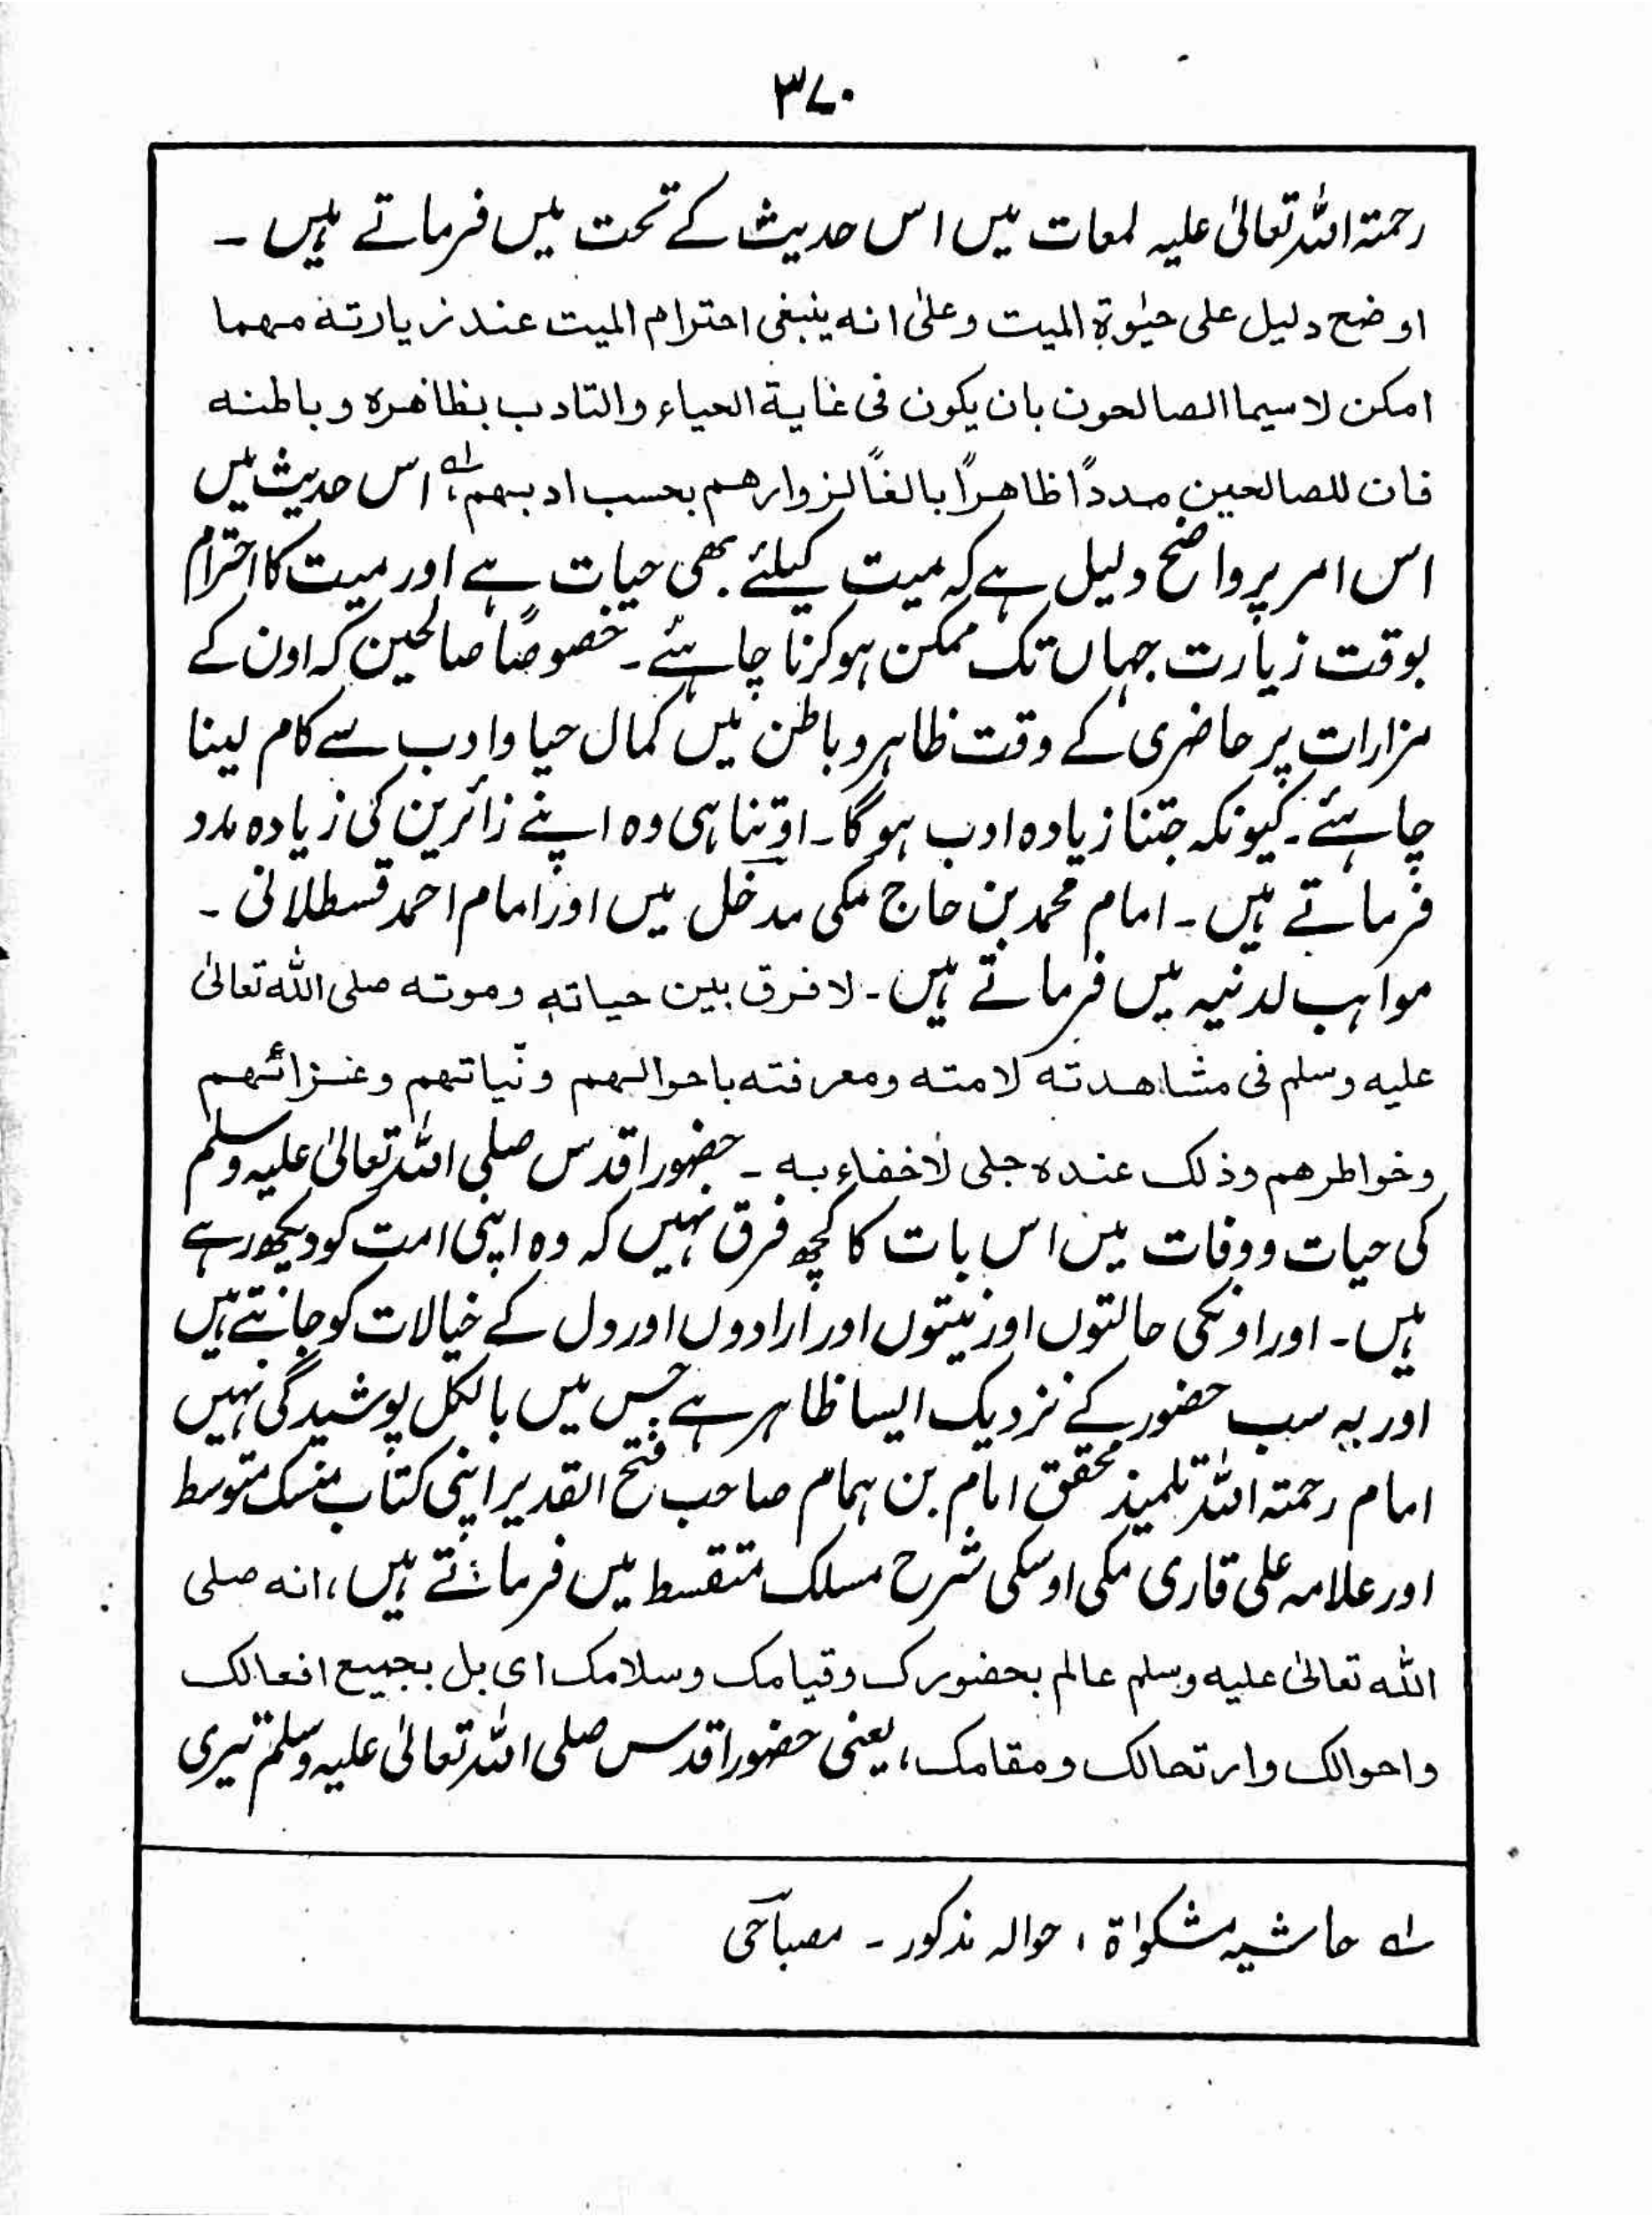 ۳۷۰
رحمتہ اللہ تعالیٰ علیہ لمعات میں اس حدیث کے تحت میں فرماتے ہیں ۔
اوضح دلیل علی حیٰوۃ المیت وعلیٰ انہ ینبغی احترام المیت عند زیارتہ مہما
امکن لاسیما الصالحون بان یکون فی غایۃ الحیاء والتادب بظاہرہ وباطنہ
فان للصالحین مدداً ظاہراً بالغاً لزوارھم بحسب ادبہم،؎۱ اس حدیث میں
اس امر پر واضح دلیل ہے کہ میت کیلئے بھی حیات ہے اور میت کا احترام
بوقت زیارت جہاں تک ممکن ہو کرنا چاہئے ۔ خصوصًا صالحین کہ اون کے
مزارات پر حاضری کے وقت ظاہر و باطن میں کمال حیا وادب سے کام لینا
چاہئے ۔ کیونکہ جتنا زیادہ ادب ہوگا ۔ اوتنا ہی وہ اپنے زائرین کی زیادہ مدد
فرماتے ہیں ۔ امام محمد بن حاج مکی مدخل میں اور امام احمد قسطلانی ۔
مواہب لدنیہ میں فرماتے ہیں ۔ لا فرق بین حیاتہٖ وموتہ صلی اللہ تعالیٰ
علیہ وسلم فی مشاھدتہ لامتہ ومعرفتہ باحوالہم ونیّاتہم وعزائمہم
وخواطرھم وذلک عندہ جلی لاخفاء بہ ۔ حضور اقدس صلی اللہ تعالیٰ علیہ وسلم
کی حیات و وفات میں اس بات کا کچھ فرق نہیں کہ وہ اپنی امت کو دیکھ رہے
ہیں ۔ اور اونکی حالتوں اور نیتوں اور ارادوں اور دل کے خیالات کو جانتے ہیں
اور یہ سب حضور کے نزدیک ایسا ظاہر ہے جس میں بالکل پوشیدگی نہیں
امام رحمتہ اللہ تلمیذ محقق امام بن ہمام صاحب فتح القدیر اپنی کتاب منسک متوسط
اور علامہ علی قاری مکی اوسکی شرح مسلک متقسط میں فرماتے ہیں، انہ صلی
اللہ تعالیٰ علیہ وسلم عالم بحضورک وقیامک وسلامک ای بل بجمیع افعالک
واحوالک وارتحالک ومقامک، یعنی حضور اقدس صلی اللہ تعالیٰ علیہ وسلم تیری
؎۱ حاشیہ مشکوٰۃ، حوالہ مذکور ۔ مصباحی